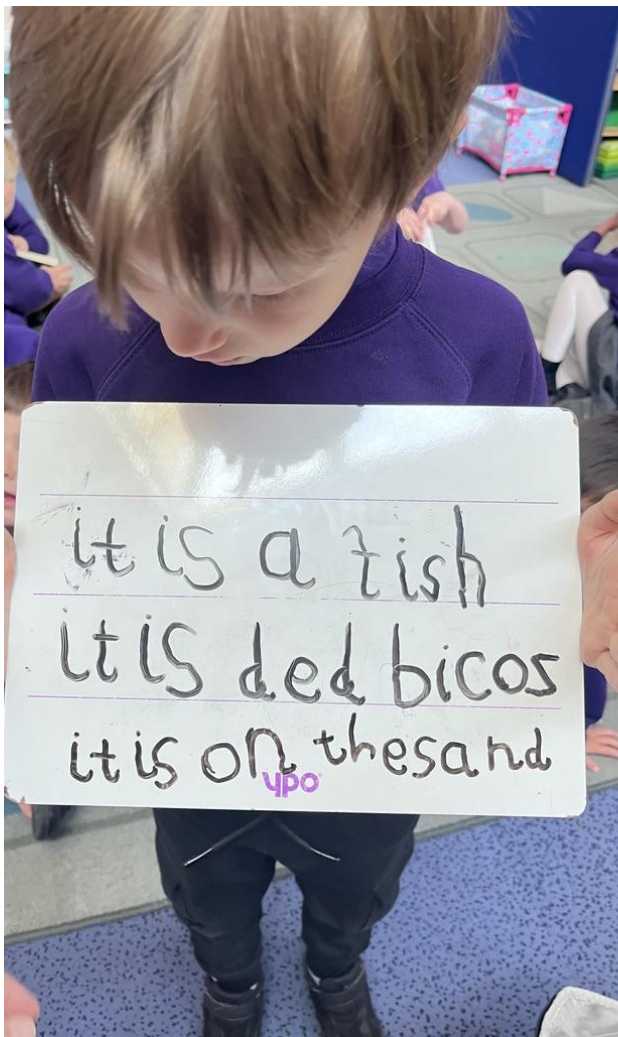 it is a fish
it is ded bicos
it is on thesand
ypo